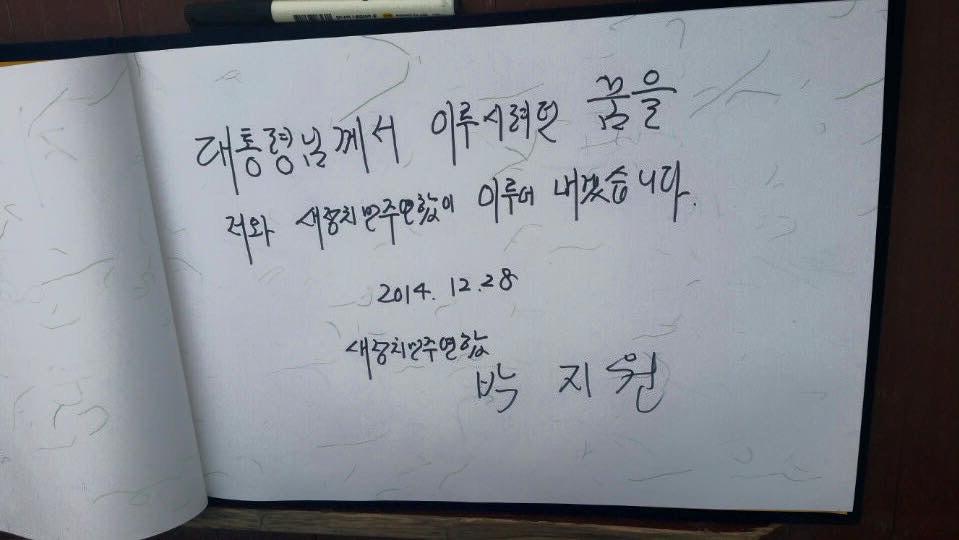 대통령님께서 이루시려던 꿈을
저와 새정치민주연합이 이루어 내겠습니다.
2014. 12. 28
새정치민주연합
박 지 원